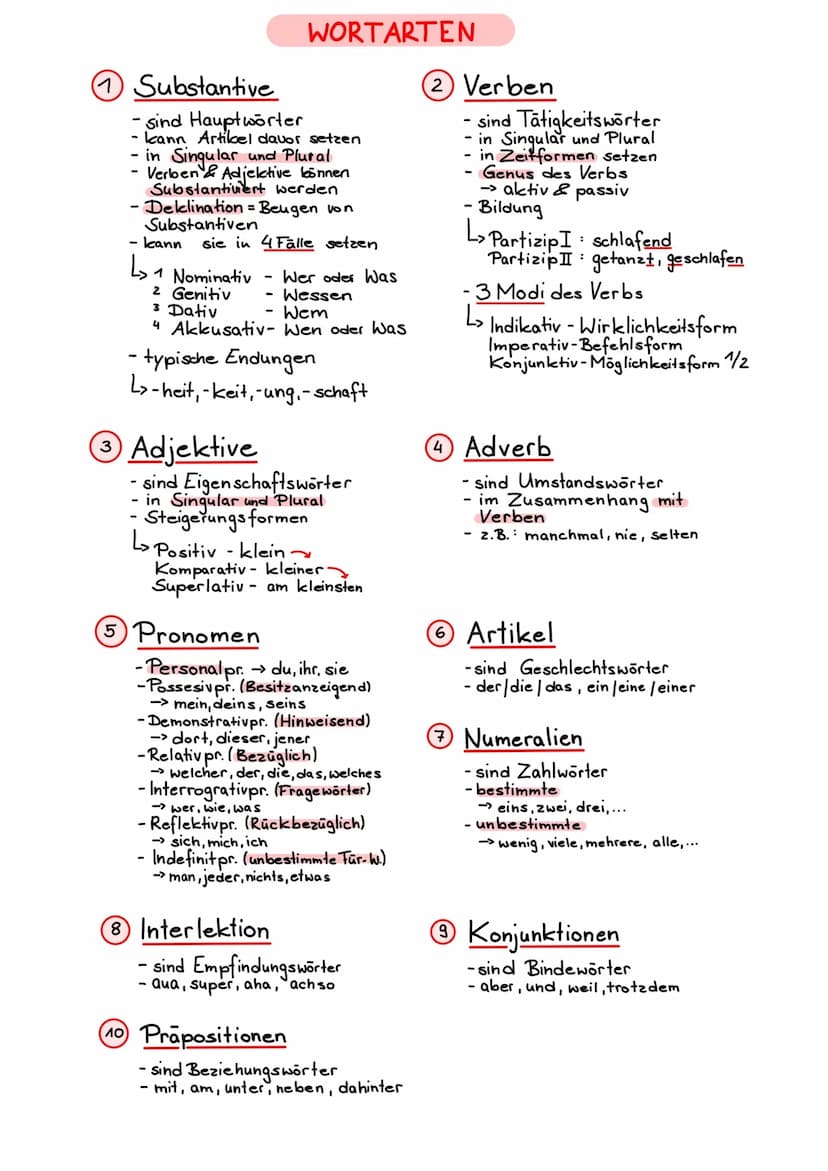 WORTARTEN
1 Substantive
- sind Hauptwörter
- kann Artikel davor setzen
- in Singular und Plural
- Verben & Adjektive können
Substantiviert werden
- Deklination = Beugen von
Substantiven
- kann sie in 4 Fälle setzen
↳ 1 Nominativ - Wer oder Was
2 Genitiv - Wessen
3 Dativ - Wem
4 Akkusativ - Wen oder Was
- typische Endungen
↳ -heit, -keit, -ung, -schaft
2 Verben
- sind Tätigkeitswörter
- in Singular und Plural
- in Zeitformen setzen
- Genus des Verbs
→ aktiv & passiv
- Bildung
↳ Partizip I : schlafend
Partizip II : getanzt, geschlafen
- 3 Modi des Verbs
↳ Indikativ - Wirklichkeitsform
Imperativ - Befehlsform
Konjunktiv - Möglichkeitsform 1/2
3 Adjektive
- sind Eigenschaftswörter
- in Singular und Plural
- Steigerungsformen
↳ Positiv - klein
Komparativ - kleiner
Superlativ - am kleinsten
4 Adverb
- sind Umstandswörter
- im Zusammenhang mit
Verben
- z.B.: manchmal, nie, selten
5 Pronomen
- Personalpr. → du, ihr, sie
- Possesivpr. (Besitzanzeigend)
→ mein, deins, seins
- Demonstrativpr. (Hinweisend)
→ dort, dieser, jener
- Relativpr. (Bezüglich)
→ welcher, der, die, das, welches
- Interrogrativpr. (Fragewörter)
→ wer, wie, was
- Reflektivpr. (Rückbezüglich)
→ sich, mich, ich
- Indefinitpr. (unbestimmte Für-W.)
→ man, jeder, nichts, etwas
6 Artikel
- sind Geschlechtswörter
- der/die/das, ein/eine/einer
7 Numeralien
- sind Zahlwörter
- bestimmte
→ eins, zwei, drei, ...
- unbestimmte
→ wenig, viele, mehrere, alle, ...
8 Interlektion
- sind Empfindungswörter
- aua, super, aha, achso
9 Konjunktionen
- sind Bindewörter
- aber, und, weil, trotzdem
10 Präpositionen
- sind Beziehungswörter
- mit, am, unter, neben, dahinter